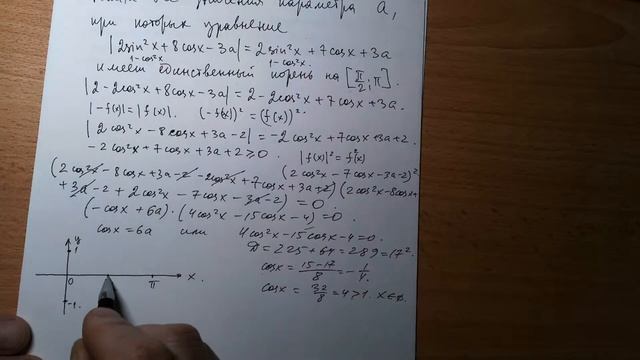 значения параметра a,
при которых уравнение
|2sin²x + 8cosx − 3a| = 2sin²x + 7cosx + 3a
1−cos²x 1−cos²x.
имеет единственный корень на [π/2; π].
|2 − 2cos²x + 8cosx − 3a| = 2 − 2cos²x + 7cosx + 3a.
|−f(x)| = |f(x)|. (−f(x))² = (f(x))².
|2cos²x − 8cosx + 3a − 2| = −2cos²x + 7cosx + 3a + 2.
−2cos²x + 7cosx + 3a + 2 ≥ 0. |f(x)|² = f²(x)
(2cos²x − 7cosx − 3a − 2)²
(2cos²x − 8cosx + 3a − 2 − 2cos²x + 7cosx + 3a + 2)(2cos²x − 8cosx +
+ 3a − 2 + 2cos²x − 7cosx − 3a − 2) = 0.
(−cosx + 6a) · (4cos²x − 15cosx − 4) = 0.
cosx = 6a или 4cos²x − 15cosx − 4 = 0.
D = 225 + 64 = 289 = 17².
cosx = (15−17)/8 = −1/4.
cosx = 32/8 = 4 > 1. x∈∅.
y
1
0 π x.
−1